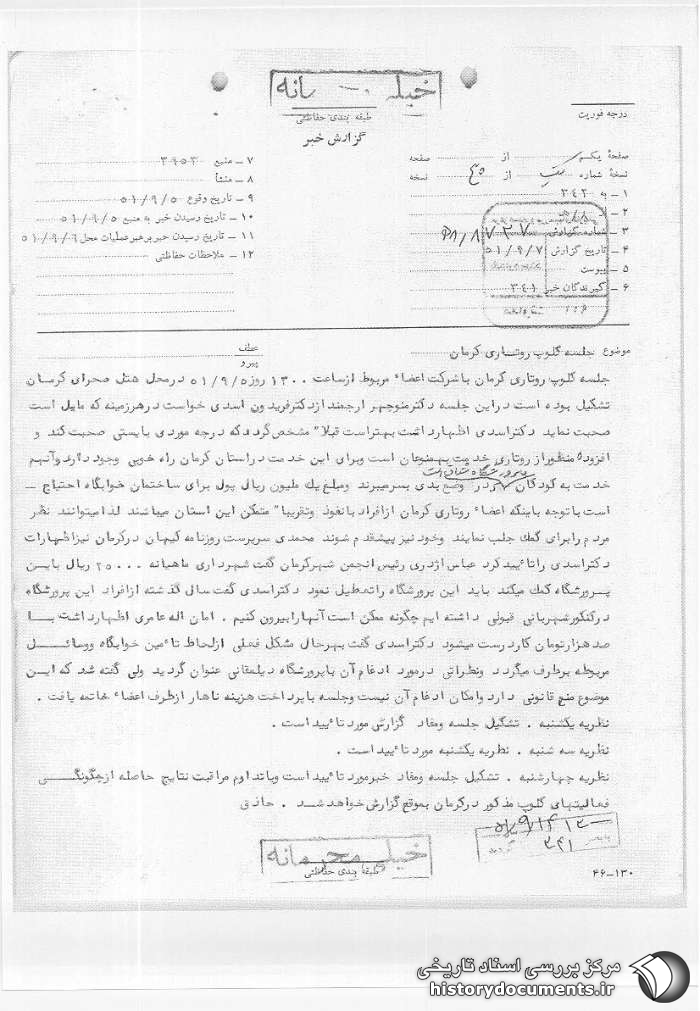 خیلی محرمانه
طبقه بندی حفاظتی
گزارش خبر
درجه فوریت
صفحه یکم از صفحه
نسخه شماره از نسخه
۱ ـ به ۳۴۲
۲ ـ از ۸ هـ
۳ ـ شماره گزارش
۴ ـ تاریخ گزارش ۵۱/۹/۷
۵ ـ پیوست
۶ ـ گیرندگان خبر ۳۴۱
۷ ـ منبع ۳۹۵۳
۸ ـ منشأ
۹ ـ تاریخ وقوع ۵۱/۹/۵
۱۰ ـ تاریخ رسیدن خبر به منبع ۵۱/۹/۵
۱۱ ـ تاریخ رسیدن خبر برهبر عملیات محل ۵۱/۹/۶
۱۲ ـ ملاحظات حفاظتی
موضوع جلسه کلوپ روتاری کرمان
عطف
پیرو
جلسه کلوپ روتاری کرمان با شرکت اعضاء مربوط از ساعت ۱۳۰۰ روز ۵۱/۹/۵ در محل هتل صحرای کرمان
تشکیل بوده است در این جلسه دکتر منوچهر ارجمند از دکتر فریدون اسدی خواست در هر زمینه که مایل است
صحبت نماید دکتر اسدی اظهار داشت بهتر است قبلا" مشخص گردد که در چه موردی بایستی صحبت کند و
افزود منظور از روتاری خدمت بهمنوعان است وبرای این خدمت در استان کرمان راه خوبی وجود دارد وآنهم
خدمت به کودکان پرورشگاه است که در وضع بدی بسر میبرند ومبلغ یک ملیون ریال پول برای ساختمان خوابگاه احتیاج ـ
است با توجه باینکه اعضاء روتاری کرمان از افراد با نفوذ وتقریبا" متمکن این استان میباشند لذا میتوانند نظر
مردم را برای کمک جلب نمایند وخود نیز پیشقدم شوند محمدی سرپرست روزنامه کیهان در کرمان نیز اظهارات
دکتر اسدی را تائید کرد عباس اژدری رئیس انجمن شهر کرمان گفت شهرداری ماهیانه ۲۵۰۰۰ ریال باین
پرورشگاه کمک میکند باید این پرورشگاه را تعطیل نمود دکتر اسدی گفت سال گذشته از افراد این پرورشگاه
در کنکور شهربانی قبولی داشته ایم چگونه ممکن است آنها را بیرون کنیم . امان اله عامری اظهار داشت بــا
صد هزار تومان کار درست میشود دکتر اسدی گفت بهر حال مشکل فعلی از لحاظ تأمین خوابگاه ووسائـــل
مربوطه برطرف میگردد ونظراتی در مورد ادغام آن با پرورشگاه دیلمقانی عنوان گردید ولی گفته شد که ایــن
موضوع منع قانونی دارد وامکان ادغام آن نیست وجلسه با پرداخت هزینه ناهار از طرف اعضاء خاتمه یافت .
نظریه یکشنبه . تشکیل جلسه ومفاد گزارش مورد تائید است .
نظریه سه شنبه . نظریه یکشنبه مورد تائید است .
نظریه چهارشنبه . تشکیل جلسه ومفاد خبر مورد تائید است وباتداوم مراقبت نتایج حاصله از چگونگـــی
فعالیتهای کلوپ مذکور در کرمان بموقع گزارش خواهد شــد . حاذق
خیلی محرمانه
طبقه بندی حفاظتی
۳۴۱
۴۶-۱۳۰
مرکز بررسی اسناد تاریخی
historydocuments.ir